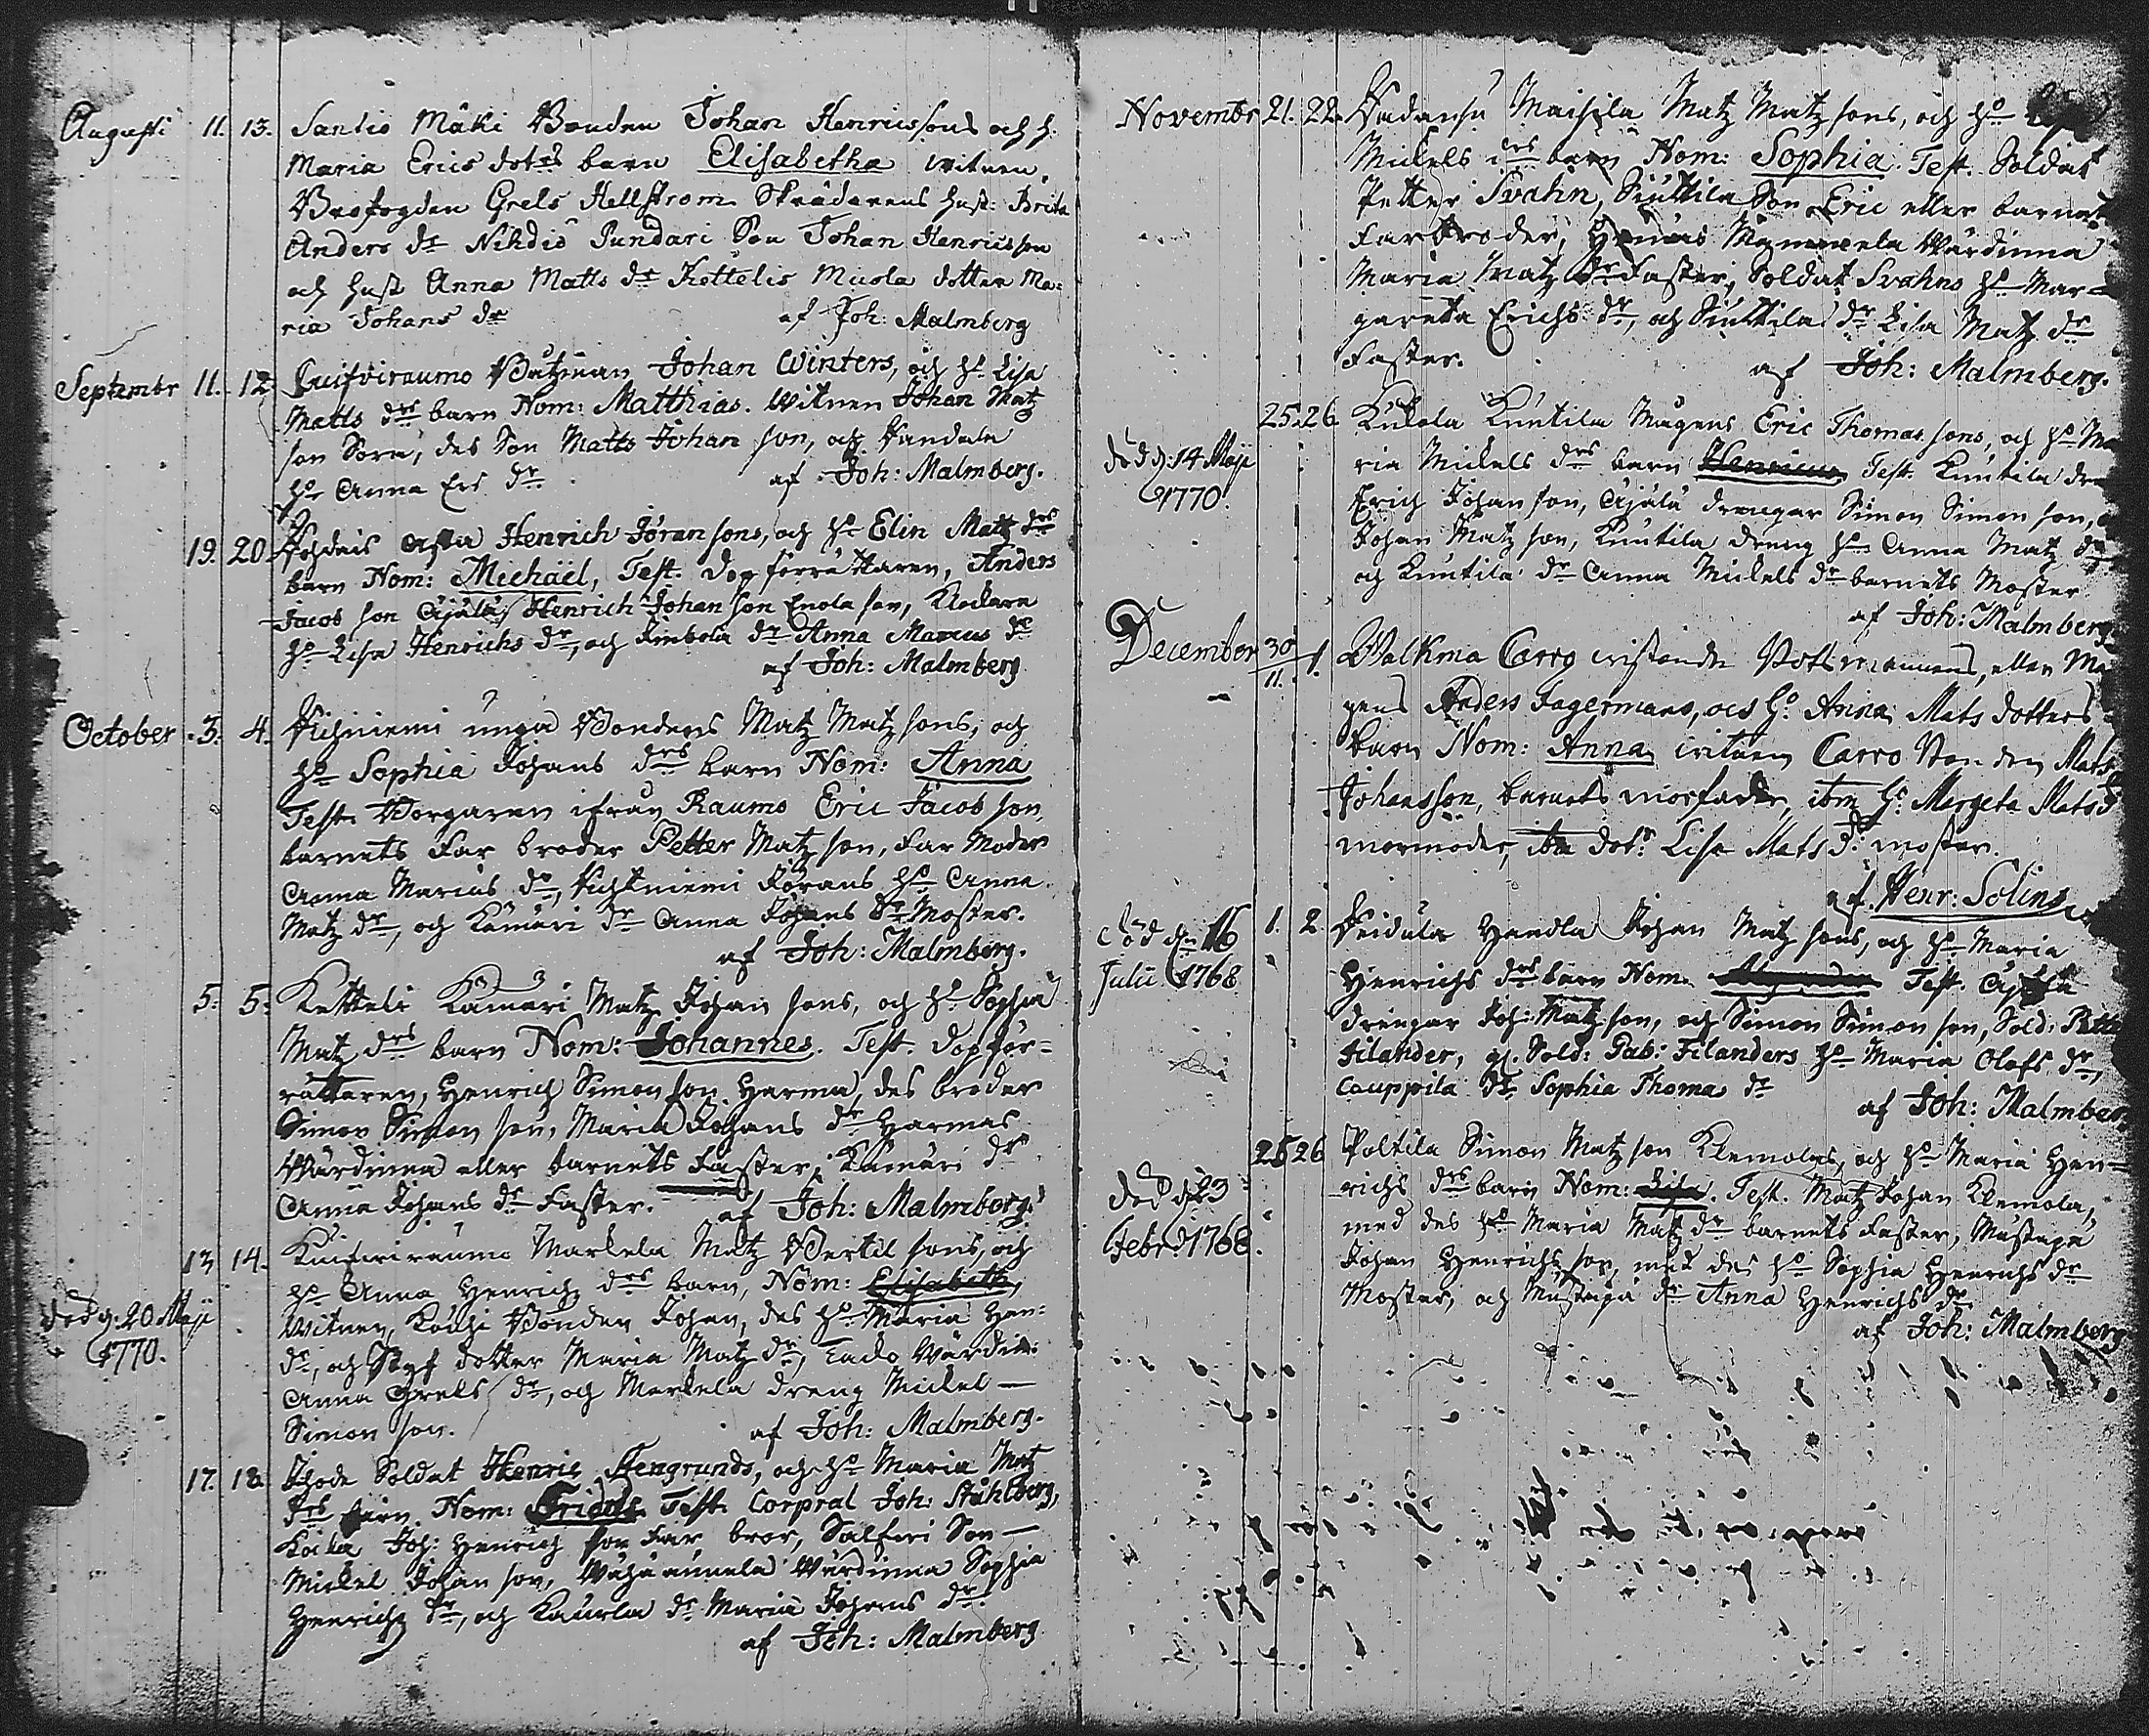 Augusti 11. 13. Santio Mäki Bonden Johan Henricssons och h.
Maria Erics dotrs barn Elisabetha witnen,
Brofogden Grels Hellstrom Skrädarens hust: Brita
Anders dr Nihdis Pundari Son Johan Henricsson
och hust Anna Matts dr Kettelis Musola dotter Ma=
ria Johans dr af Joh: Malmberg
Septembr 11. 12. Båtzman Johan Winters, och Ho Lisa
Matts drs barn Nom: Matthias. Witnen Johan Matz
son Sora, des Son Matts Johan son, och
Ho Anna Ers dr. af Joh: Malmberg.
19. 20. Henrich Jöran sons, och Ho Elin Matz drs
barn Nom: Michaël, Test. Dop förrättaren, Anders
Jacob son Äjälä, Henrich Johan son Enola son, Klockare
Ho Lisa Henrichs dr, och dr Anna Marcus dr
af Joh: Malmberg
October 3. 4. unga Bondens Matz Matz sons, och
Ho Sophia Johans drs barn Nom: Anna
Test. Borgaren ifrån Raumo Eric Jacob son,
barnets Far broder Petter Matz son, Far Moder
Anna Marcus dr, Jörans Ho Anna
Matz dr, och Kämäri dr Anna Johans dr Moster.
af Joh: Malmberg.
5. 5. Ketteli Kämäri Matz Johan sons, och Ho Sophia
Matz drs barn Nom: Johannes. Test. Dopför=
rättaren, Henrich Simon son Harma, des broder
Simon Simon son, Maria Johans dr Harmas
Wärdinna eller barnets Faster, Kämäri dr
Anna Johans dr Faster. af Joh: Malmberg.
13 14. Markela Matz Bertil sons, och
Ho Anna Henrichs drs barn, Nom: Elisabeth,
död d. 20 Maji Witnen, Bonden Johan, des Ho Maria Hen:
1770. dr, och Styf dotter Maria Matz dr, Wärdin:
Anna Grels dr, och Markela dreng Mickel —
Simon son. af Joh: Malmberg.
17. 18. Soldat Henric Stengrunds, och Ho Maria Matz
drs barn. Nom: Test. Corpral Joh: Ståhlberg,
Joh: Henrich son Far bror, Son —
Mickel Johan son, Wärdinna Sophia
Henrichs dr, och dr Maria Johans dr.
af Joh: Malmberg
Novembr 21. 22. Maisila Matz Matz sons, och Ho
Mickels drs barn Nom: Sophia. Test. Soldat
Petter Svahn, Siuttila Son Eric eller barnets
Farbroder, Wärdinna
Maria Matz dr Faster, Soldat Svahns Ho Mar=
gareta Erichs dr, och Siuttila dr Lisa Matz dr
Faster. af Joh: Malmberg.
25. 26. Kukola Kuntila Mågens Eric Thomas sons, och Ho Ma
död d: 14 Maji ria Mickels drs barn Henricus, Test. Kuntila dre
1770. Erich Johan son, Äjälä drengar Simon Simon son,
Johan Matz son, Kuntila dreng Ho Anna Matz dr
och Kuntila dr Anna Mickels dr barnets Moster
af Joh: Malmberg
December 30/11. 1. Walkma Carro wistande Botsmannens, eller Må
gens Anders Fagermans, ocs Ho. Anna Mats dotters
barn Nom: Anna witnen Carro Bonden Mats
Johansson, barnets morfader, item Ho Margeta Mats d
mormoder, item dotr. Lisa Mats dr moster.
af. Henr: Solins
död den 16 1. 2. Johan Matz sons, och Ho Maria
Julii 1768 Henrichs drs barn Nom. Test.
drengar Joh: Matz son, och Simon Simon son, Sold: Pette
Filander, gl. Sold: Gab: Filanders Ho Maria Olofs dr,
Cauppila dr Sophia Thomas dr
af Joh: Malmberg
25 26 Poltila Simon Matz son Klemolas, och Ho Maria Hen=
död d 23 richs drs barn Nom: Lisa. Test. Matz Johan Klemola,
Febr 1768. med des Ho Maria Matz dr barnets Faster, Mustapä
Johan Henrichs son, med des Ho Sophia Henrichs dr
Moster, och Mustapä dr Anna Henrichs dr
af Joh: Malmberg